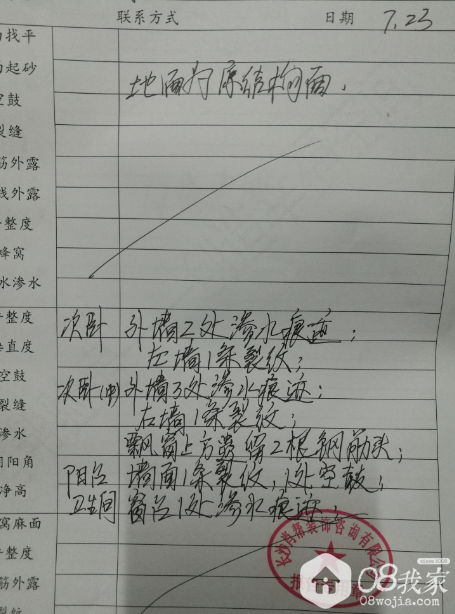 联系方式 日期 7.23
找平
起砂 地面为原结构面.
空鼓
裂缝
筋外露
线外露
整度
蜂窝
水渗水
整度 次卧 外墙2处渗水痕迹;
垂直度 左墙1条裂纹;
空鼓 次卧(中)外墙3处渗水痕迹;
裂缝 右墙1条裂纹;
渗水 飘窗上方遗留2根钢筋头;
阴阳角 阳台 墙面1条裂纹,1处空鼓;
净高 卫生间 窗台1处渗水痕迹;
窝麻面
整度
筋外露
裂纹
装饰咨询有限公司
08我家
08wojia.com